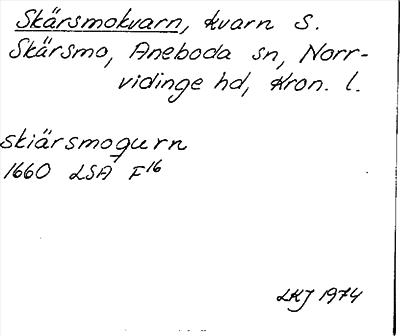 Skärsmokvarn, kvarn S.
Skärsmo, Aneboda sn, Norr-
vidinge hd, Kron. l.
skiärsmoqurn
1660 LSA F16
LKJ 1974